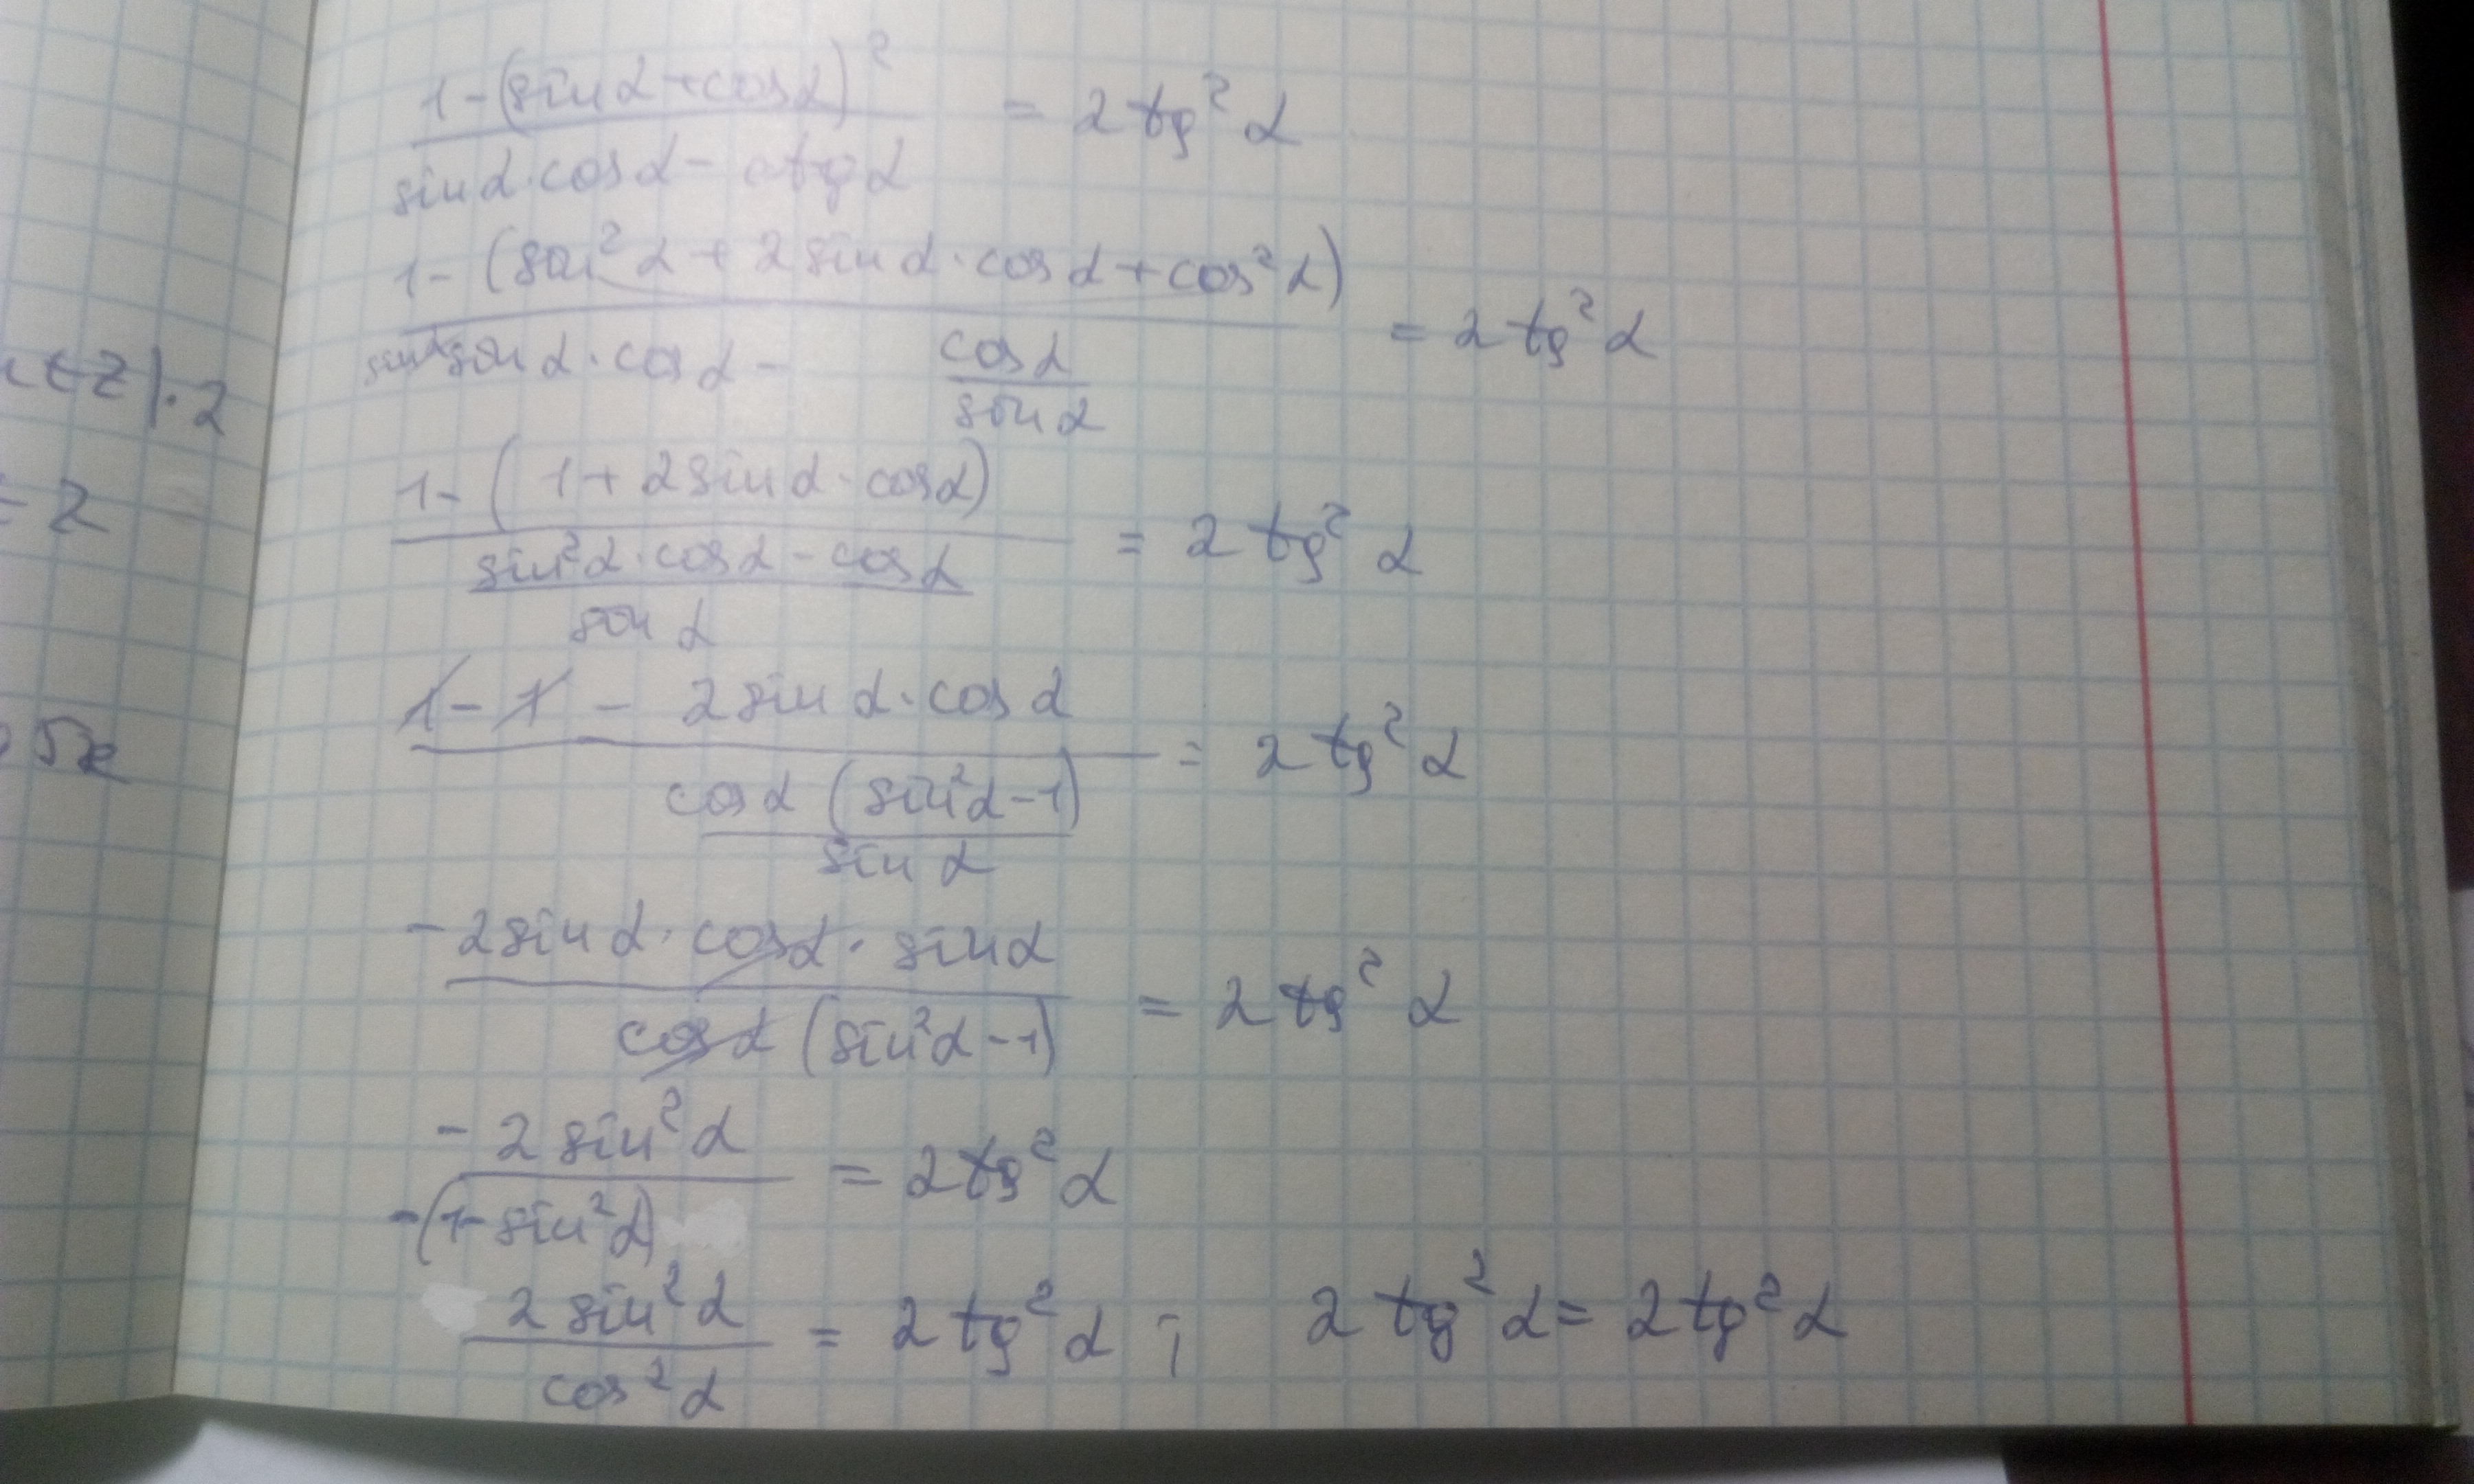 (1-(sinα+cosα)²)/(sinα·cosα-ctgα) = 2tg²α
(1-(sin²α+2sinα·cosα+cos²α))/(sinα·cosα - cosα/sinα) = 2tg²α
(1-(1+2sinα·cosα))/((sin²α·cosα-cosα)/sinα) = 2tg²α
(1-1-2sinα·cosα)/(cosα(sin²α-1)/sinα) = 2tg²α
(-2sinα·cosα·sinα)/(cosα(sin²α-1)) = 2tg²α
(-2sin²α)/(-(1-sin²α)) = 2tg²α
(2sin²α)/(cos²α) = 2tg²α ; 2tg²α = 2tg²α
·2
= 2